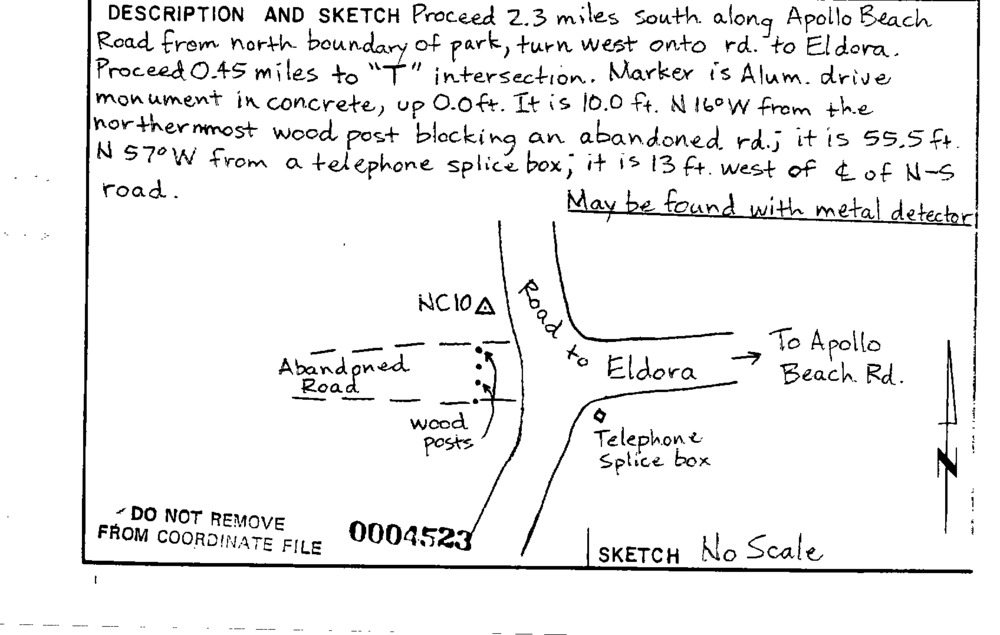 DESCRIPTION AND SKETCH Proceed 2.3 miles south along Apollo Beach
Road from north boundary of park, turn west onto rd. to Eldora.
Proceed 0.45 miles to "T" intersection. Marker is Alum. drive
monument in concrete, up 0.0ft. It is 10.0 ft. N 16°W from the
northernmost wood post blocking an abandoned rd.; it is 55.5 ft.
N 57°W from a telephone splice box; it is 13 ft. west of ℄ of N-S
road.
May be found with metal detector
NC10
Road to Eldora
To Apollo
Beach Rd.
Abandoned
Road
wood
posts
Telephone
Splice box
N
DO NOT REMOVE
FROM COORDINATE FILE
0004523
SKETCH No Scale